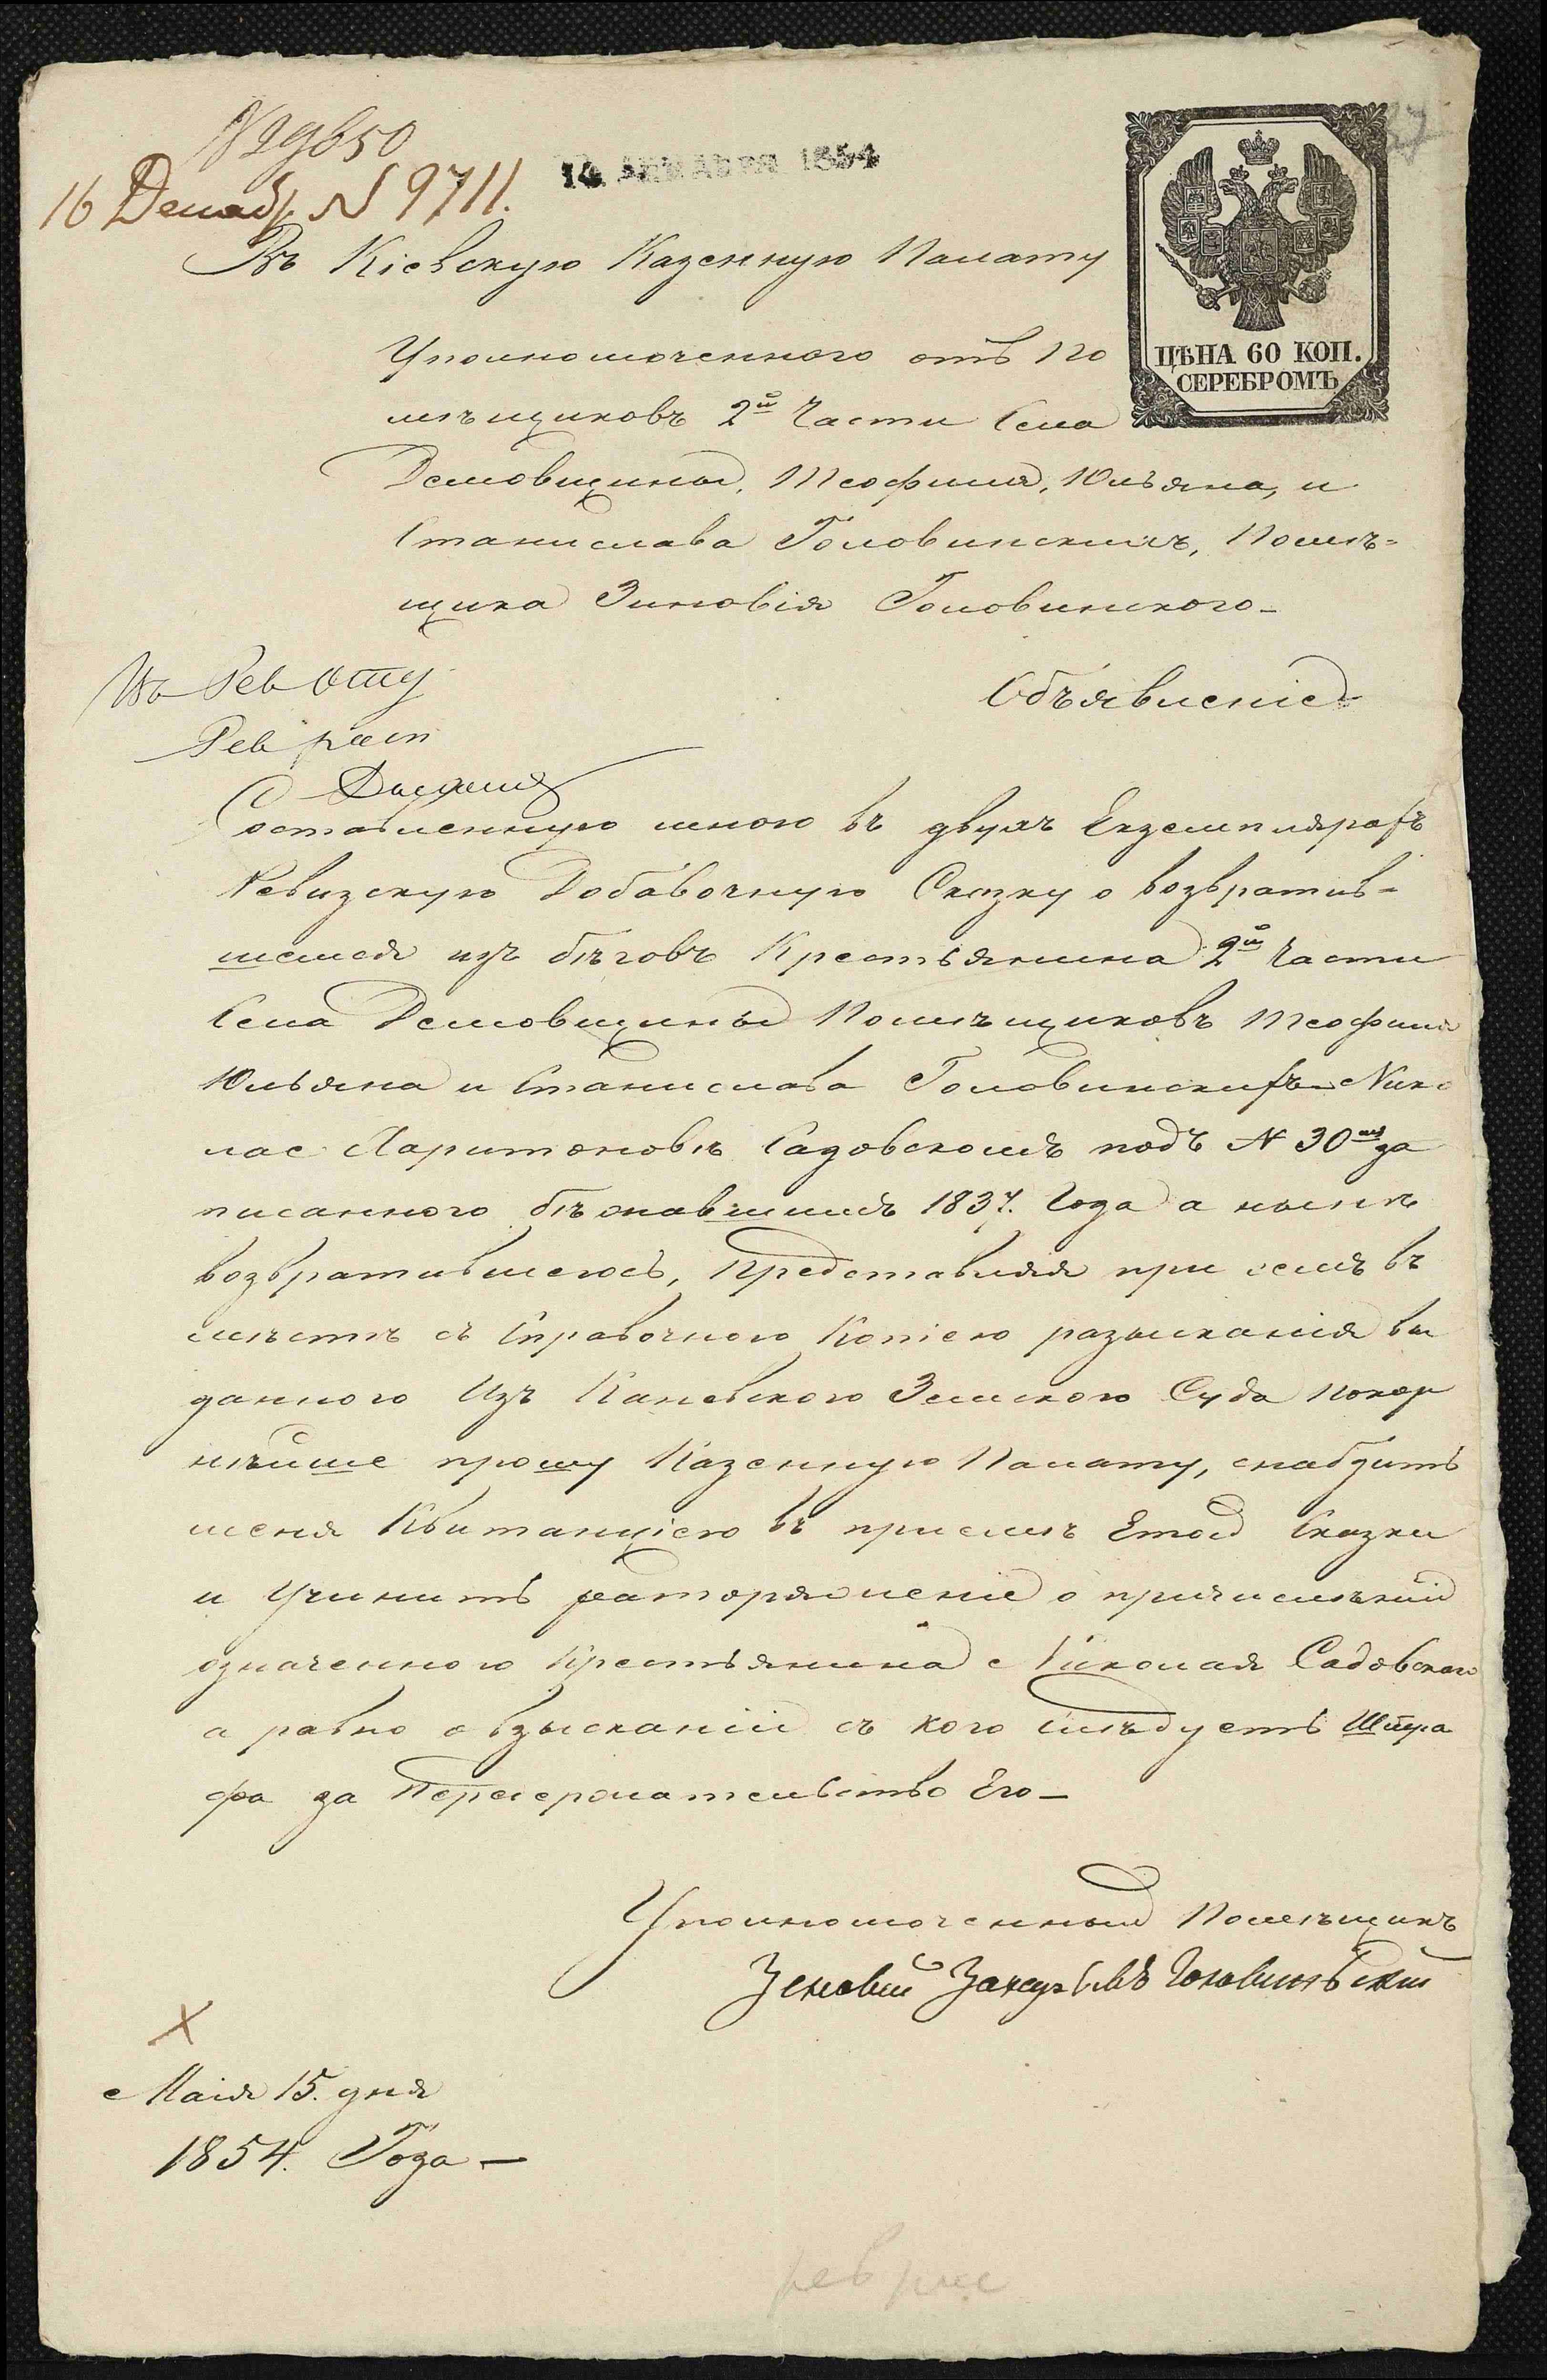 № 29650
16 Декаб. N 9711.
14 ДЕКАБРЯ 1854
Въ Кіевскую Казенную Палату
ЦѢНА 60 КОП.
СЕРЕБРОМЪ
Уполномоченного отъ По
мѣщиковъ 2й Части Села
Демовщины, Теофиля, Юльяна, и
Станислава Головинскихъ, Помѣ=
щика Зиновія Головинского_
Объявленіе
Въ Рев Отд
Рев
Составленную мною въ двухъ Екземплярахъ
Ревизскую Добавочную Сказку о возвратив=
шемся изъ бѣговъ Крестьянина 2й Части
Села Демовщины Помѣщиковъ Теофиля
Юльяна и Станислава Головинскихъ Нико
лае Харитоновѣ Садовскомъ подъ N 30мъ за
писанного бѣжавшимъ 1837. Года а нынѣ
возвратившегось, Представляя при семъ въ
мѣстѣ съ Справочною Копіею разысканія вы
данного Изъ Каневского Земского Суда Покор
нѣйше прошу Казенную Палату, снабдить
меня Квитанціею въ пріемѣ Етой Сказки
и Учинить о причисленіи
означенного Крестьянина Николая Садовского
а равно о взысканіи съ кого слѣдуетъ Штра
фа за Передержательство Его_
Уполномоченный Помѣщикъ
Зеновій Головинскій
Х
Маія 15. дня
1854. Года_
рев